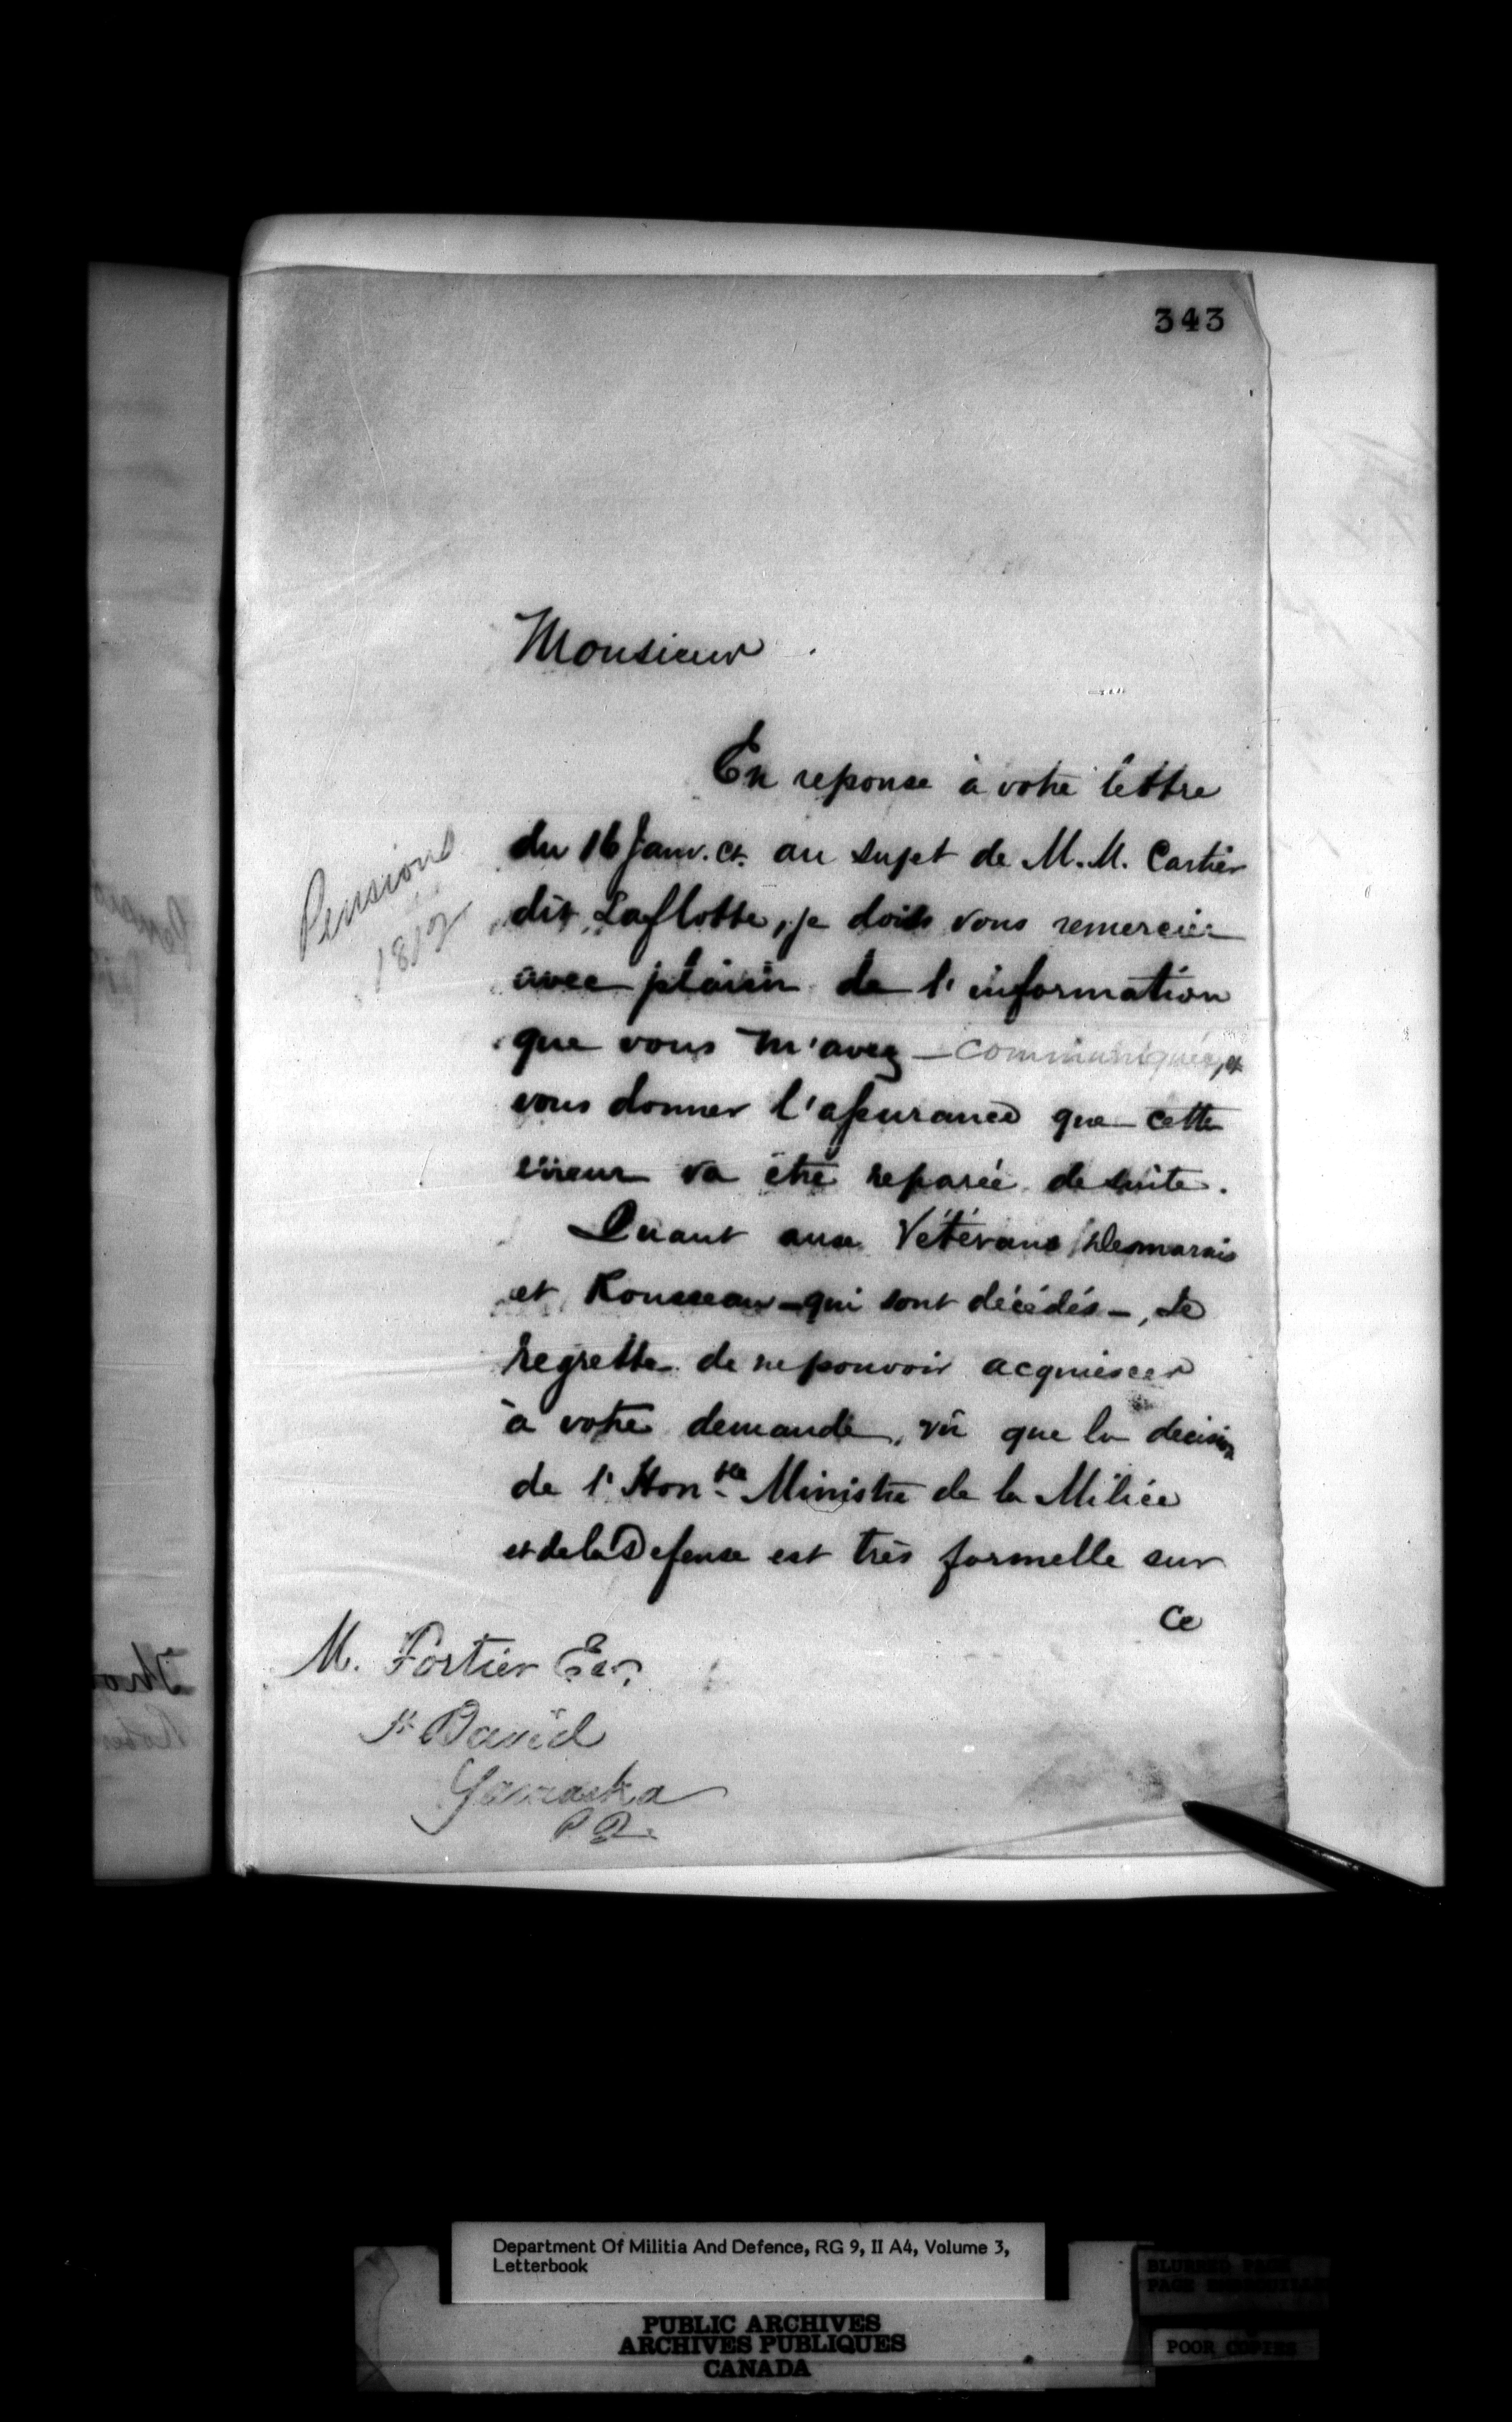 343
Monsieur
En reponse à votre lettre
du 16 Janv. ct. au sujet de M. M. Cartier
dit Laflotte, je dois vous remercier
avec plaisir de l'information
que vous m'avez communiquée, et
vous donner l'assurance que cette
erreur va être reparée de suite.
Quant aux Vétérans Desmarais
et Rousseau - qui sont décédés -, Je
regrette de ne pouvoir acquiescer
à votre demande, vû que la decision
de l'Honble Ministre de la Milice
et de la Defense est très formelle sur
ce
Pensions
1812
M. Fortier Ecr.
St David
Yamaska
P Q.
Department Of Militia And Defence, RG 9, II A4, Volume 3,
Letterbook
PUBLIC ARCHIVES
ARCHIVES PUBLIQUES
CANADA
BLURRED PAGE
POOR COPIES